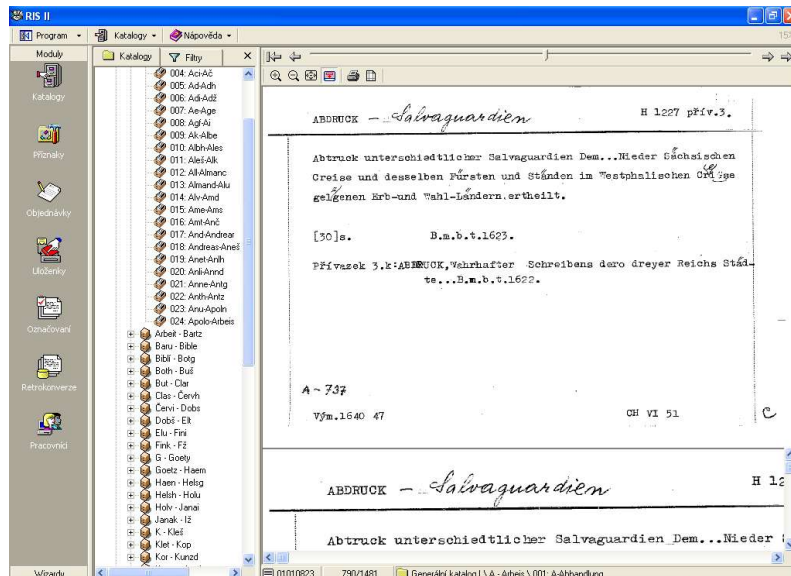 RIS II
Program
Katalogy
Nápověda
Moduly
Katalogy
Příznaky
Objednávky
Uloženky
Označovaní
Retrokonverze
Pracovníci
Wizardy
Katalogy
Filtry
004: Aci-Ač
005: Ad-Adh
006: Adi-Adž
007: Ae-Age
008: Agf-Ai
009: Ak-Albe
010: Albh-Ales
011: Aleš-Alk
012: All-Almanc
013: Almand-Alu
014: Alv-Amd
015: Ame-Ams
016: Amt-Anč
017: And-Andrear
018: Andreas-Aneš
019: Anet-Anlh
020: Anli-Annd
021: Anne-Antg
022: Anth-Antz
023: Anu-Apoln
024: Apolo-Arbeis
Arbeit - Bartz
Baru - Bible
Bibli - Botg
Both - Buš
But - Clar
Clas - Červh
Červi - Dobs
Dobš - Elt
Elu - Fini
Fink - Fž
G - Goety
Goetz - Haem
Haen - Helsg
Helsh - Holu
Holv - Janai
Janak - Iž
K - Kleš
Klet - Kop
Kor - Kunzd
ABDRUCK - Salvaguardien H 1227 přív.3.
Abtruck unterschiedtlicher Salvaguardien Dem...Nieder Sächsischen
Creise und desselben Fürsten und Ständen im Westphalischen
gelegenen Erb-und Wahl-Ländern.ertheilt.
[30]s. B.m.b.t.1623.
Přívazek 3.k:ABDRUCK,Wahrhafter Schreibens dero dreyer Reichs Städ-
te...B.m.b.t.1622.
A - 737
Vým.1640 47 CH VI 51 C
ABDRUCK - Salvaguardien H 12
Abtruck unterschiedtlicher Salvaguardien Dem...Nieder
01010823 790/1481 Generální katalog I \ A - Arbeis \ 001: A-Abhandlung